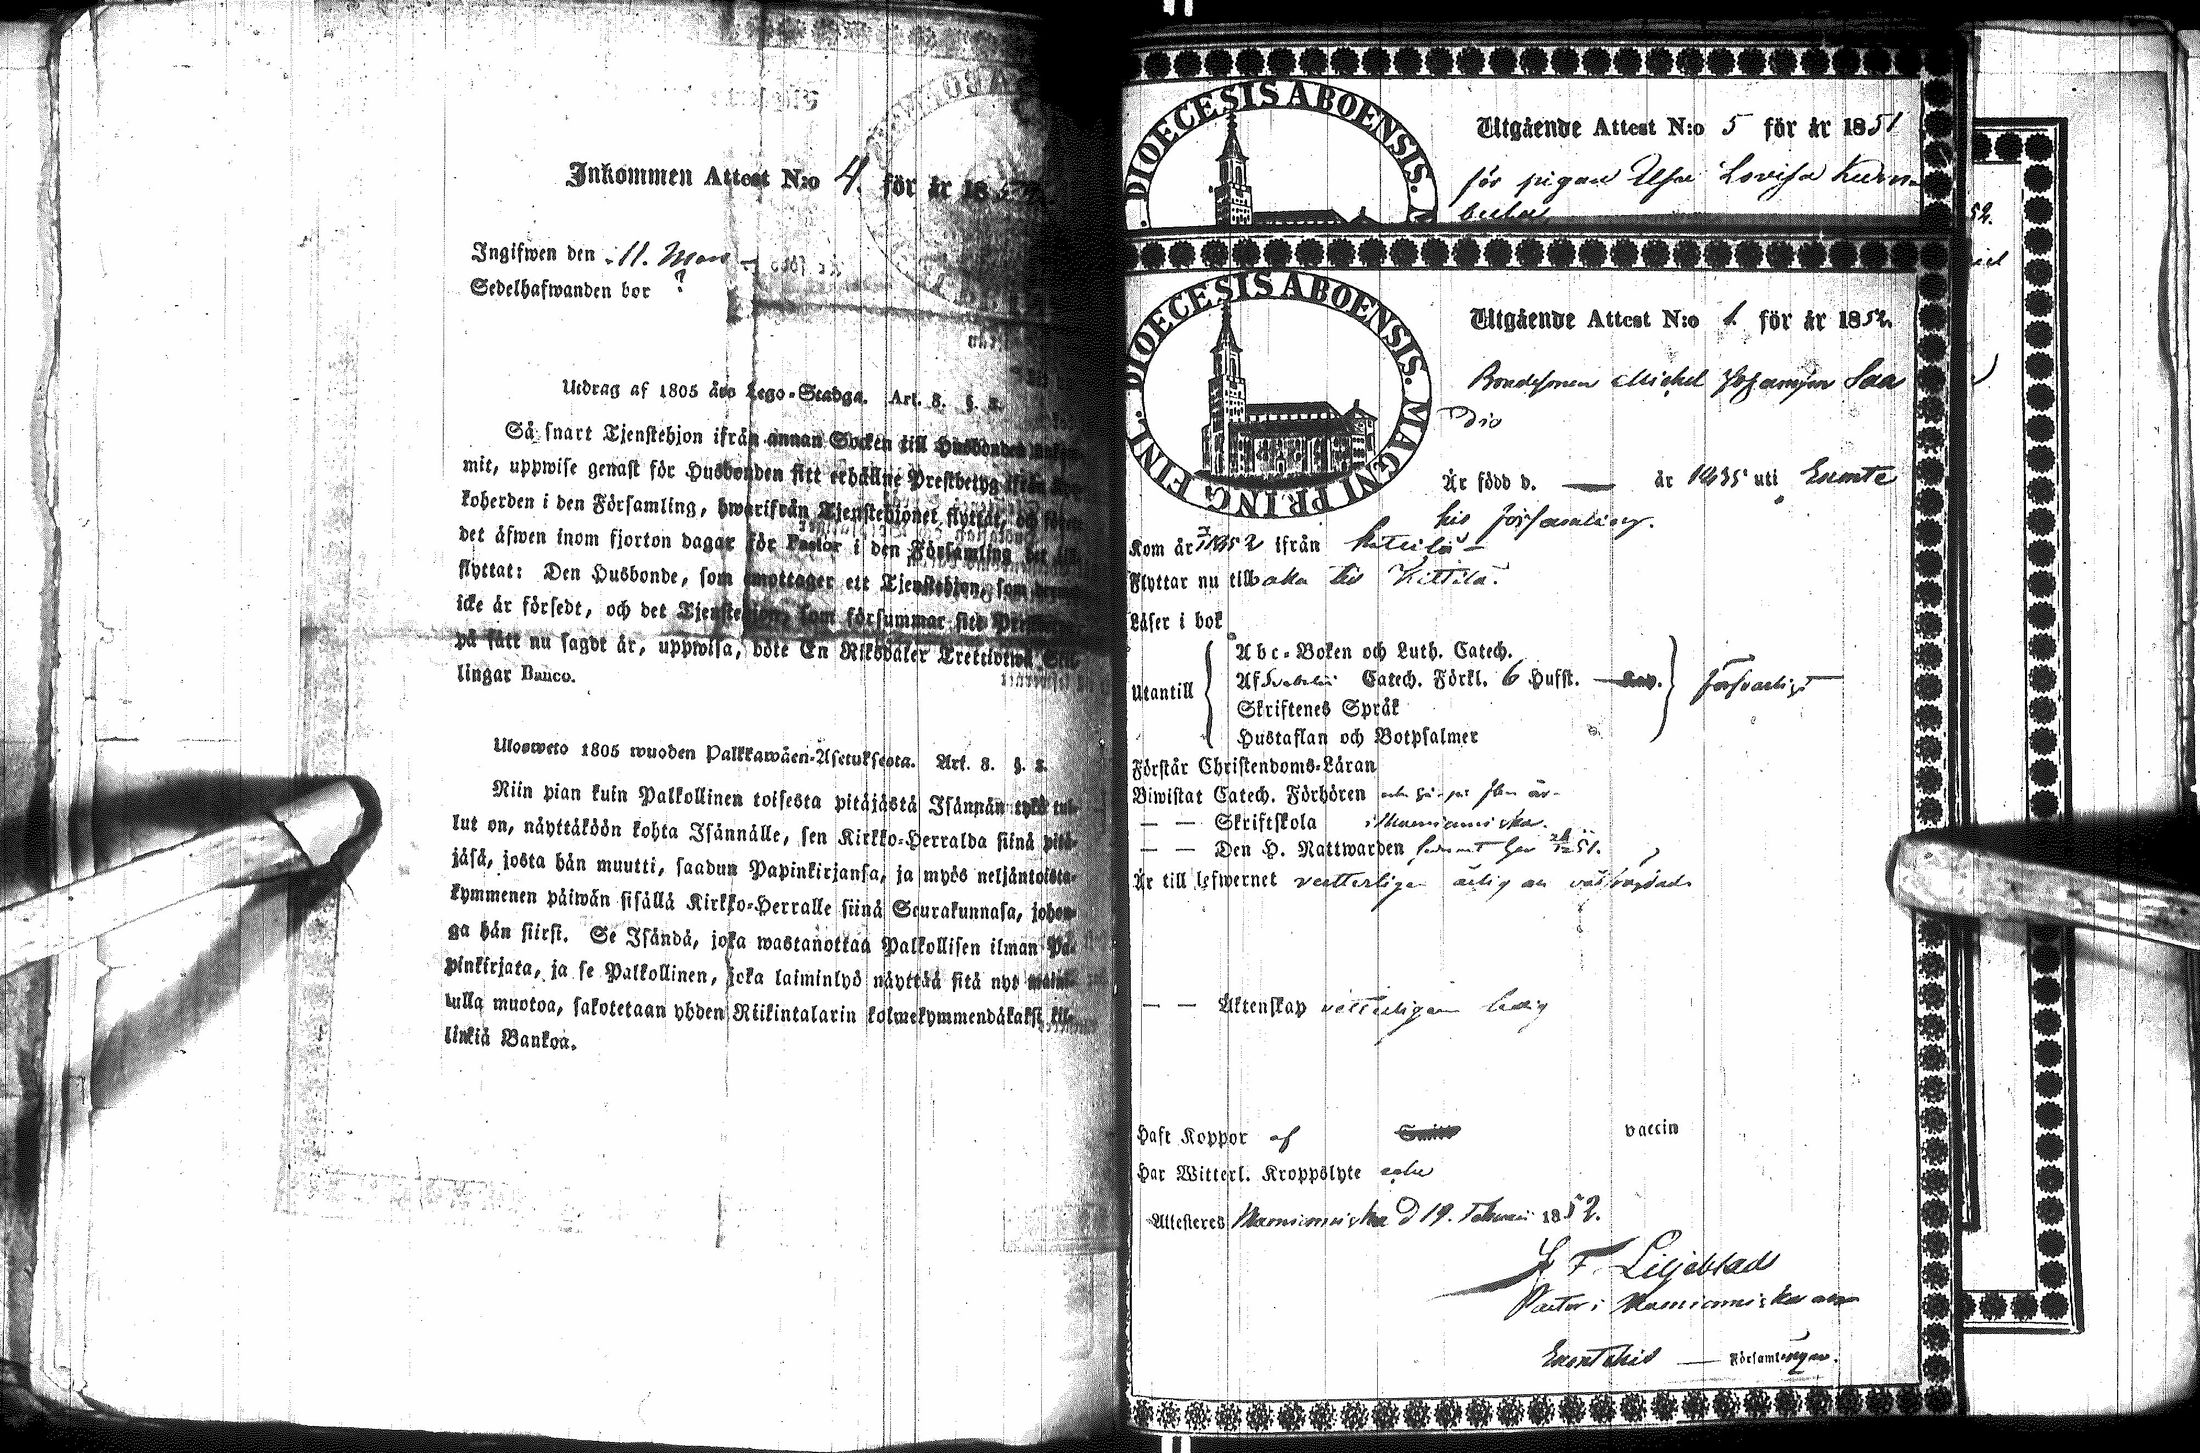 Inkommen Attest N:o 4. för år 1852.
Ingifwen den 11. Mars
Sedelhafwanden bor ?
Utdrag af 1805 års Lego-Stadga. Art. 8. §. 2.
Så snart Tjenstehjon ifrån annan Socken till Husbonden ankom-
mit, uppwise genast för Husbonden sitt erhållne Prestbetyg ifrån Kyr-
koherden i den Församling, hwarifrån Tjenstehjonet flyttat, och
det äfwen inom fjorton dagar för Pastor i den Församling det
flyttat: Den Husbonde, som emottager ett Tjenstehjon, som
icke är försedt, och det Tjenstehjon, som försummar sitt
på sätt nu sagdt är, uppwisa, böte En Riksdaler Trettiotwå Skil-
lingar Banco.
Ulosweto 1805 wuoden Palkkawäen-Asetuksesta. Art. 8. §. 2.
Niin pian kuin Palkollinen toisesta pitäjästä Isännän tykö tul-
lut on, näyttäköön kohta Isännälle, sen Kirkko-Herralda siinä pitä-
jäsä, josta hän muutti, saadun Papinkirjansa, ja myös neljäntoista-
kymmenen päiwän sisällä Kirkko-Herralle siinä Seurakunnasa, johon-
ga hän siirsi. Se Isändä, joka wastanottaa Palkollisen ilman Pa-
pinkirjata, ja se Palkollinen, joka laiminlyö näyttää sitä nyt maini-
tulla muotoa, sakotetaan yhden Riikintalarin kolmekymmendäkaksi kil-
linkiä Bankoa.
DIOECESIS ABOENSIS. M
Utgående Attest N:o 5 för år 1851
för pigan Elsa Lovisa
DIOECESIS ABOENSIS. MAGNI PRING FINL.
Utgående Attest N:o 1. för år 1852.
Bondesonen Michel Johansson
Är född d. — år 1835 uti Enonte
kis församling.
Kom år 1852 ifrån Kittilä
Flyttar nu tillbaka till Kittilä.
Läser i bok
Utantill
Abc-Boken och Luth. Catech.
Af Svebelii Catech. Förkl. 6 Hufst.
Skriftenes Språk
Hustaflan och Botpsalmer
försvarligt
Förstår Christendoms-Läran
Biwistat Catech. Förhören
— — Skriftskola
— — Den H. Nattwarden
Är till lefwernet vetterligen ärlig
— — Äktenskap vetterligen ledig
Haft Koppor af vaccin
Har Witterl. Kroppslyte
Attesteres d 19. Februari 1852.
F. Liljeblad
Pastor i
Enontekis — Församlingar.